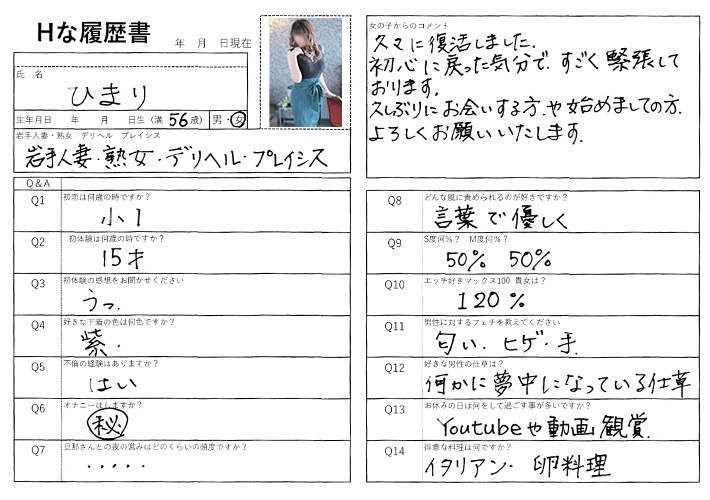 Hな履歴書
年 月 日現在
氏 名
ひまり
生年月日 年 月 日生（満 56 歳） 男・女
岩手人妻・熟女 デリヘル プレイシス
岩手人妻・熟女・デリヘル・プレイシス
女の子からのコメント
久々に復活しました.
初心に戻った気分で、すごく緊張して
おります.
久しぶりにお会いする方、や始めましての方、
よろしくお願いいたします.
Q&A
Q1 初恋は何歳の時ですか？
小1
Q2 初体験は何歳の時ですか？
15才
Q3 初体験の感想をお聞かせください
うっ.
Q4 好きな下着の色は何色ですか？
紫.
Q5 不倫の経験はありますか？
はい
Q6 オナニーはしますか？
秘
Q7 旦那さんとの夜の営みはどのくらいの頻度ですか？
・・・・・
Q8 どんな風に責められるのが好きですか？
言葉で優しく
Q9 S度何%？ M度何%？
50% 50%
Q10 エッチ好きマックス100 貴女は？
120%
Q11 男性に対するフェチを教えてください
匂い・ヒゲ・手
Q12 好きな男性の仕草は？
何かに夢中になっている仕草
Q13 お休みの日は何をして過ごす事が多いですか？
Youtubeや動画観賞.
Q14 得意な料理は何ですか？
イタリアン・ 卵料理